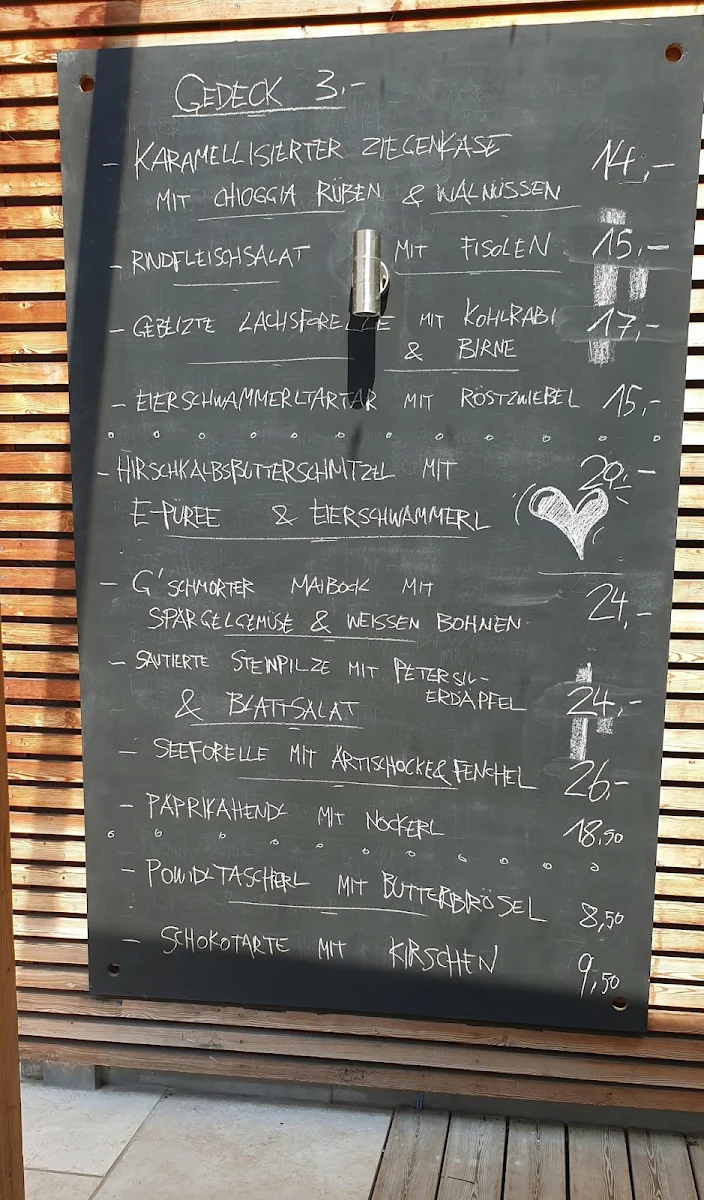 GEDECK 3,-
- KARAMELLISIERTER ZIEGENKÄSE 14,-
MIT CHIOGGIA RÜBEN & WALNÜSSEN
- RINDFLEISCHSALAT MIT FISOLEN 15,-
- GEBEIZTE LACHSFORELLE MIT KOHLRABI 17,-
& BIRNE
- EIERSCHWAMMERLTARTAR MIT RÖSTZWIEBEL 15,-
- HIRSCHKALBSBUTTERSCHNITZEL MIT 20,-
E-PÜREE & EIERSCHWAMMERL
- G'SCHMORTER MAIBOCK MIT 24,-
SPARGELGEMÜSE & WEISSEN BOHNEN
- SAUTIERTE STEINPILZE MIT PETERSIL-
ERDÄPFEL 24,-
& BLATTSALAT
- SEEFORELLE MIT ARTISCHOCKE & FENCHEL 26,-
- PAPRIKAHENDL MIT NOCKERL 18,50
- POWIDLTASCHERL MIT BUTTERBRÖSEL 8,50
- SCHOKOTARTE MIT KIRSCHEN 9,50